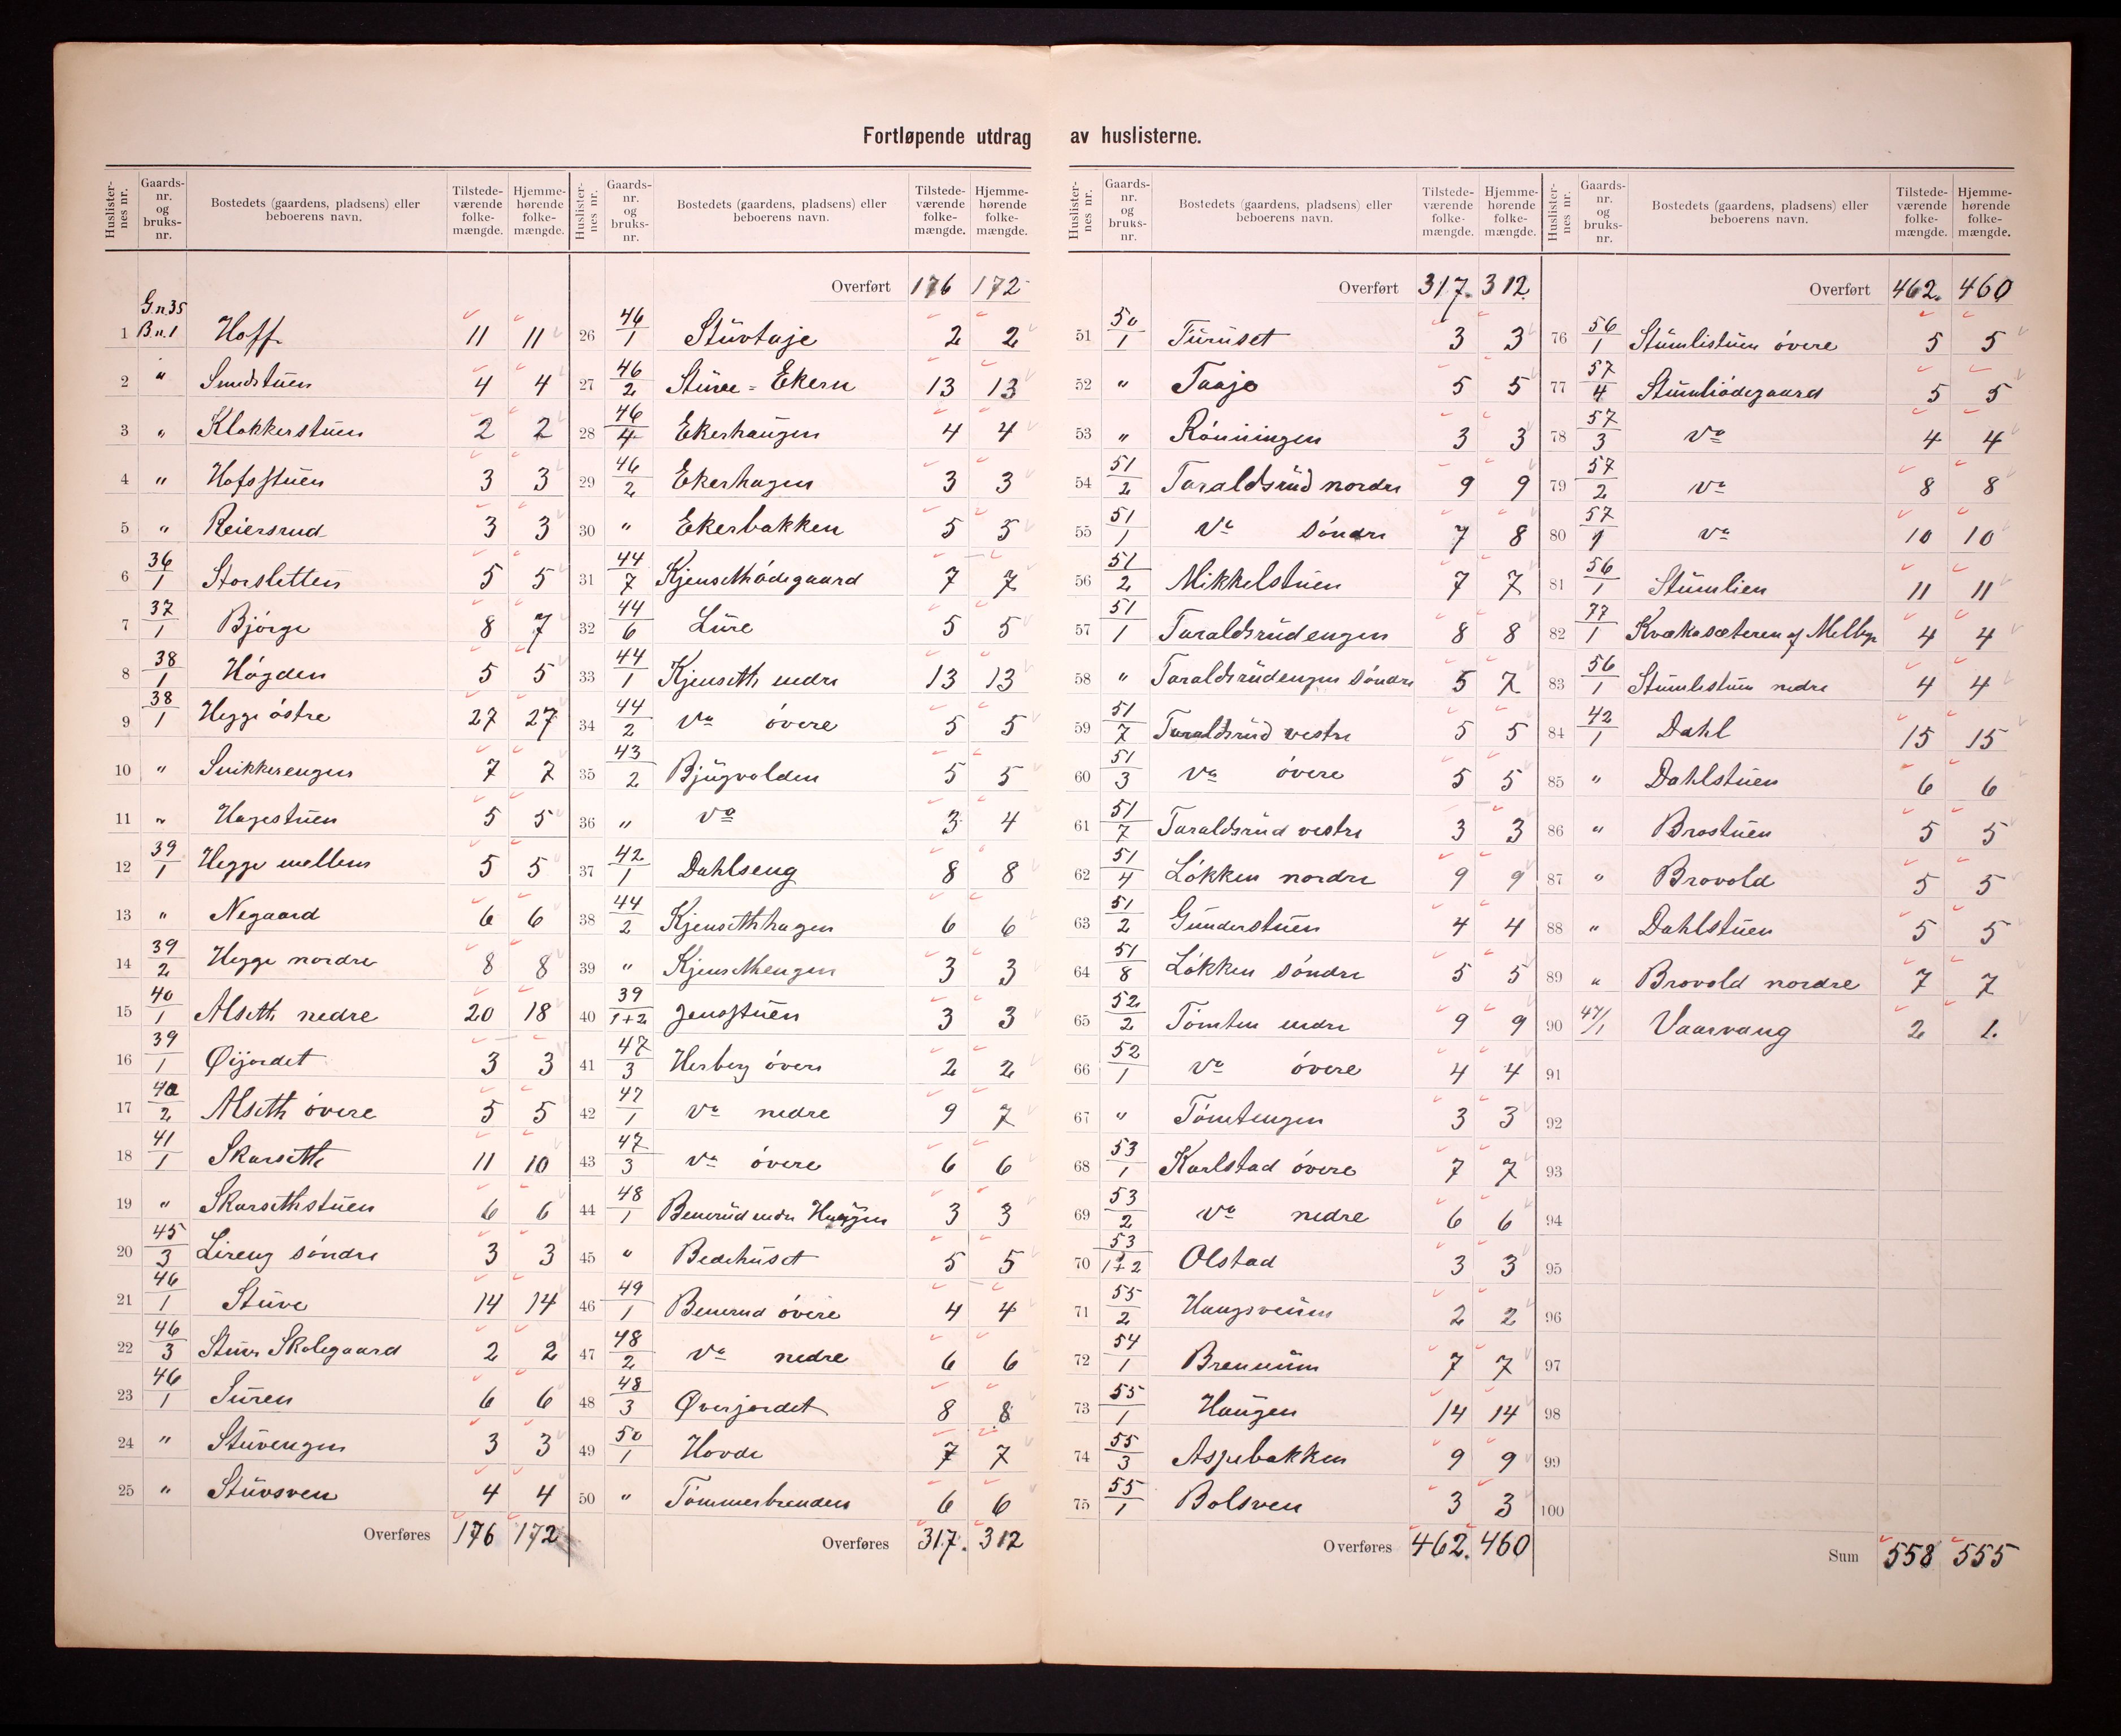 Fortløpende utdrag av huslisterne.
Huslister-nes nr. Gaards-nr. og bruks-nr. Bostedets (gaardens, pladsens) eller beboerens navn. Tilstede-værende folke-mængde. Hjemme-hørende folke-mængde.
1 G.n 35 B.n. 1 Hoff 11 11
2 " Smedstuen 4 4
3 " Klokkerstuen 2 2
4 " Hofsstuen 3 3
5 " Reiersrud 3 3
6 36/1 Storsletten 5 5
7 37/1 Bjørge 8 7
8 38/1 Høgden 5 5
9 38/1 Hegge østre 27 27
10 " Snikkerengen 7 7
11 " Hagestuen 5 5
12 39/1 Hegge mellem 5 5
13 " Negaard 6 6
14 39/2 Hegge nordre 8 8
15 40/1 Alseth nedre 20 18
16 39/1 Øijordet 3 3
17 40/2 Alseth øvere 5 5
18 41/1 Skarseth 11 10
19 " Skarsethstuen 6 6
20 45/3 Lireng søndre 3 3
21 46/1 Stuve 14 14
22 46/3 Stuve Skolegaard 2 2
23 46/1 Suren 6 6
24 " Stuvengen 3 3
25 " Stuvsven 4 4
Overføres 176 172
Huslister-nes nr. Gaards-nr. og bruks-nr. Bostedets (gaardens, pladsens) eller beboerens navn. Tilstede-værende folke-mængde. Hjemme-hørende folke-mængde.
Overført 176 172
26 46/1 Stuvtaje 2 2
27 46/2 Stuve = Ekern 13 13
28 46/4 Ekerhaugen 4 4
29 46/2 Ekerhagen 3 3
30 " Ekerbakken 5 5
31 44/7 Kjensethødegaard 7 7
32 44/6 Lure 5 5
33 44/1 Kjenseth nedre 13 13
34 44/2 Do øvere 5 5
35 43/2 Bjugvolden 5 5
36 " Do 3 4
37 42/1 Dahlseng 8 8
38 44/2 Kjensethhagen 6 6
39 " Kjensethengen 3 3
40 39/1+2 Jensstuen 3 3
41 47/3 Herberg øvere 2 2
42 47/1 Do nedre 9 7
43 47/3 Do øvere 6 6
44 48/1 Benerud nedre Haugen 3 3
45 " Bedehuset 5 5
46 49/1 Benerud øvere 4 4
47 48/2 Do nedre 6 6
48 48/3 Øverjordet 8 8
49 50/1 Hovde 7 7
50 " Tømmerbrenden 6 6
Overføres 317. 312
Huslister-nes nr. Gaards-nr. og bruks-nr. Bostedets (gaardens, pladsens) eller beboerens navn. Tilstede-værende folke-mængde. Hjemme-hørende folke-mængde.
Overført 317. 312.
51 50/1 Furuset 3 3
52 " Taajo 5 5
53 " Rønningen 3 3
54 51/2 Taraldsrud nordre 9 9
55 51/1 Do søndre 7 8
56 51/2 Mikkelstuen 7 7
57 51/1 Taraldsrudengen 8 8
58 " Taraldsrudengen søndre 5 7
59 51/7 Taraldsrud vestre 5 5
60 51/3 Do øvere 5 5
61 51/7 Taraldsrud vestre 3 3
62 51/4 Løkken nordre 9 9
63 51/2 Gunderstuen 4 4
64 51/8 Løkken søndre 5 5
65 52/2 Tømten nedre 9 9
66 52/1 Do øvere 4 4
67 " Tømtengen 3 3
68 53/1 Karlstad øvere 7 7
69 53/2 Do nedre 6 6
70 53/1+2 Olstad 3 3
71 55/2 Haugsveum 2 2
72 54/1 Brennum 7 7
73 55/1 Haugen 14 14
74 55/3 Aspebakken 9 9
75 55/1 Bolsven 3 3
Overføres 462. 460
Huslister-nes nr. Gaards-nr. og bruks-nr. Bostedets (gaardens, pladsens) eller beboerens navn. Tilstede-værende folke-mængde. Hjemme-hørende folke-mængde.
Overført 462. 460
76 56/1 Stumlistuen øvere 5 5
77 57/4 Stumliødegaard 5 5
78 57/3 Do 4 4
79 57/2 Do 8 8
80 57/1 Do 10 10
81 56/1 Stumlien 11 11
82 77/1 Kvækesæteren af Melbye 4 4
83 56/1 Stumlistuen nedre 4 4
84 42/1 Dahl 15 15
85 " Dahlstuen 6 6
86 " Brostuen 5 5
87 " Brovold 5 5
88 " Dahlstuen 5 5
89 " Brovold nordre 7 7
90 47/1 Vaarvang 2 1.
91
92
93
94
95
96
97
98
99
100
Sum 558 555